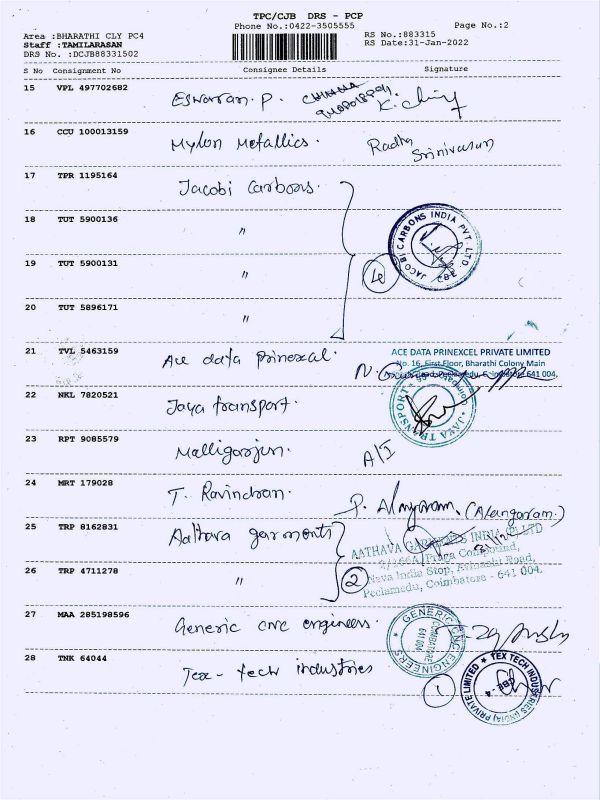 TPC/CJB DRS - PCP
Phone No.:0422-3505555
Page No.:2
Area :BHARATHI CLY PC4
Staff :TAMILARASAN
DRS No. :DCJB88331502
RS No.:883315
RS Date:31-Jan-2022
S No Consignment No Consignee Details Signature
15 VPL 497702682 Eswaran. P.
16 CCU 100013159 Mylon Metallics. Radha
Srinivasan
17 TPR 1195164 Jacobi Carbons.
18 TUT 5900136 "
JACOBI CARBONS INDIA PVT. LTD
19 TUT 5900131 " 4
20 TUT 5896171 "
21 TVL 5463159 Ace data prinexcel.
ACE DATA PRINEXCEL PRIVATE LIMITED
No. 16, First Floor, Bharathi Colony Main
Road, Peelamedu, Coimbatore 641 004.
22 NKL 7820521 Jaya transport.
JAYA TRANSPORT
23 RPT 9085579 Malligarjun. A/I
24 MRT 179028 T. Ravindran. (Alangaram)
25 TRP 8162831 Aathava garments
AATHAVA GARMENTS INDIA (P) LTD
2/266A, Praga Compound,
26 TRP 4711278 " 2
Nava India Stop, Avinashi Road,
Peelamedu, Coimbatore - 641 004.
27 MAA 285198596 Generic cnc engineers.
GENERIC CNC ENGINEERS
COIMBATORE
641 004
28 TNK 64044 Tex-tech industries 1
TEX TECH INDUSTRIES (INDIA) PRIVATE LIMITED
CBE-4